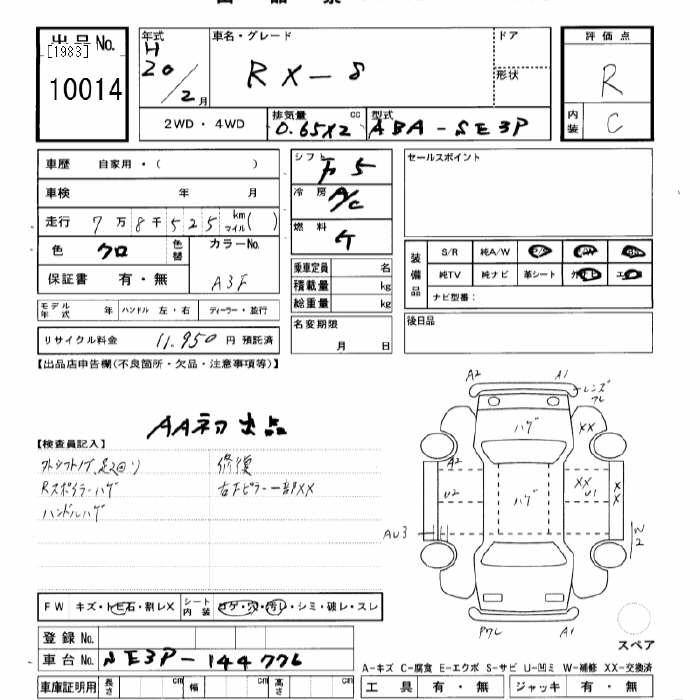 出品No.
[1983]
10014
年式 H 20/2 月
車名・グレード RX-8
ドア
形状
2WD・4WD
排気量 0.65X2 cc
型式 ABA-SE3P
評価点 R
内装 C
車歴 自家用・( )
車検 年 月
走行 7万8千525 km マイル( )
色 クロ 色替
カラーNo. A3F
保証書 有・無
モデル年式 年 ハンドル 左・右 ディーラー・並行
リサイクル料金 11.950 円 預託済
シフト F5
冷房 A/C
燃料
乗車定員 名
積載量 kg
総重量 kg
名変期限
月 日
セールスポイント
装備品 S/R 純A/W
純TV 純ナビ 革シート
ナビ型番:
後日品
【出品店申告欄(不良箇所・欠品・注意事項等)】
AA初出品
【検査員記入】
修復
Rスポイラーハゲ 右下ピラー一部XX
ハンドルハゲ
A2 A1
レンズ
ハゲ XX
A2
U2 ハゲ XX U1 XX
AU3 W2
A1
FW キズ・トビ石・割レX シート内装 コゲ・穴・汚レ・シミ・破レ・スレ
登録No.
車台No. SE3P-144776
スペア
A-キズ C-腐食 E-エクボ S-サビ U-凹ミ W-補修 XX-交換済
車庫証明用 長さ cm 幅 cm 高さ cm
工具 有・無 ジャッキ 有・無